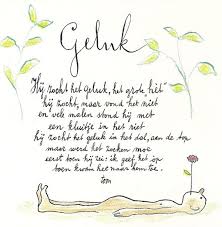 Geluk
"Hij zocht het geluk, het grote "hèt"
hij zocht, maar vond het niet
en vele malen stond hij met
een kluitje in het riet
hij zocht het geluk in het dal, aan de top
maar werd het zoeken moe
eerst toen hij zei: ik geef het op
toen kwam het naar hem toe.